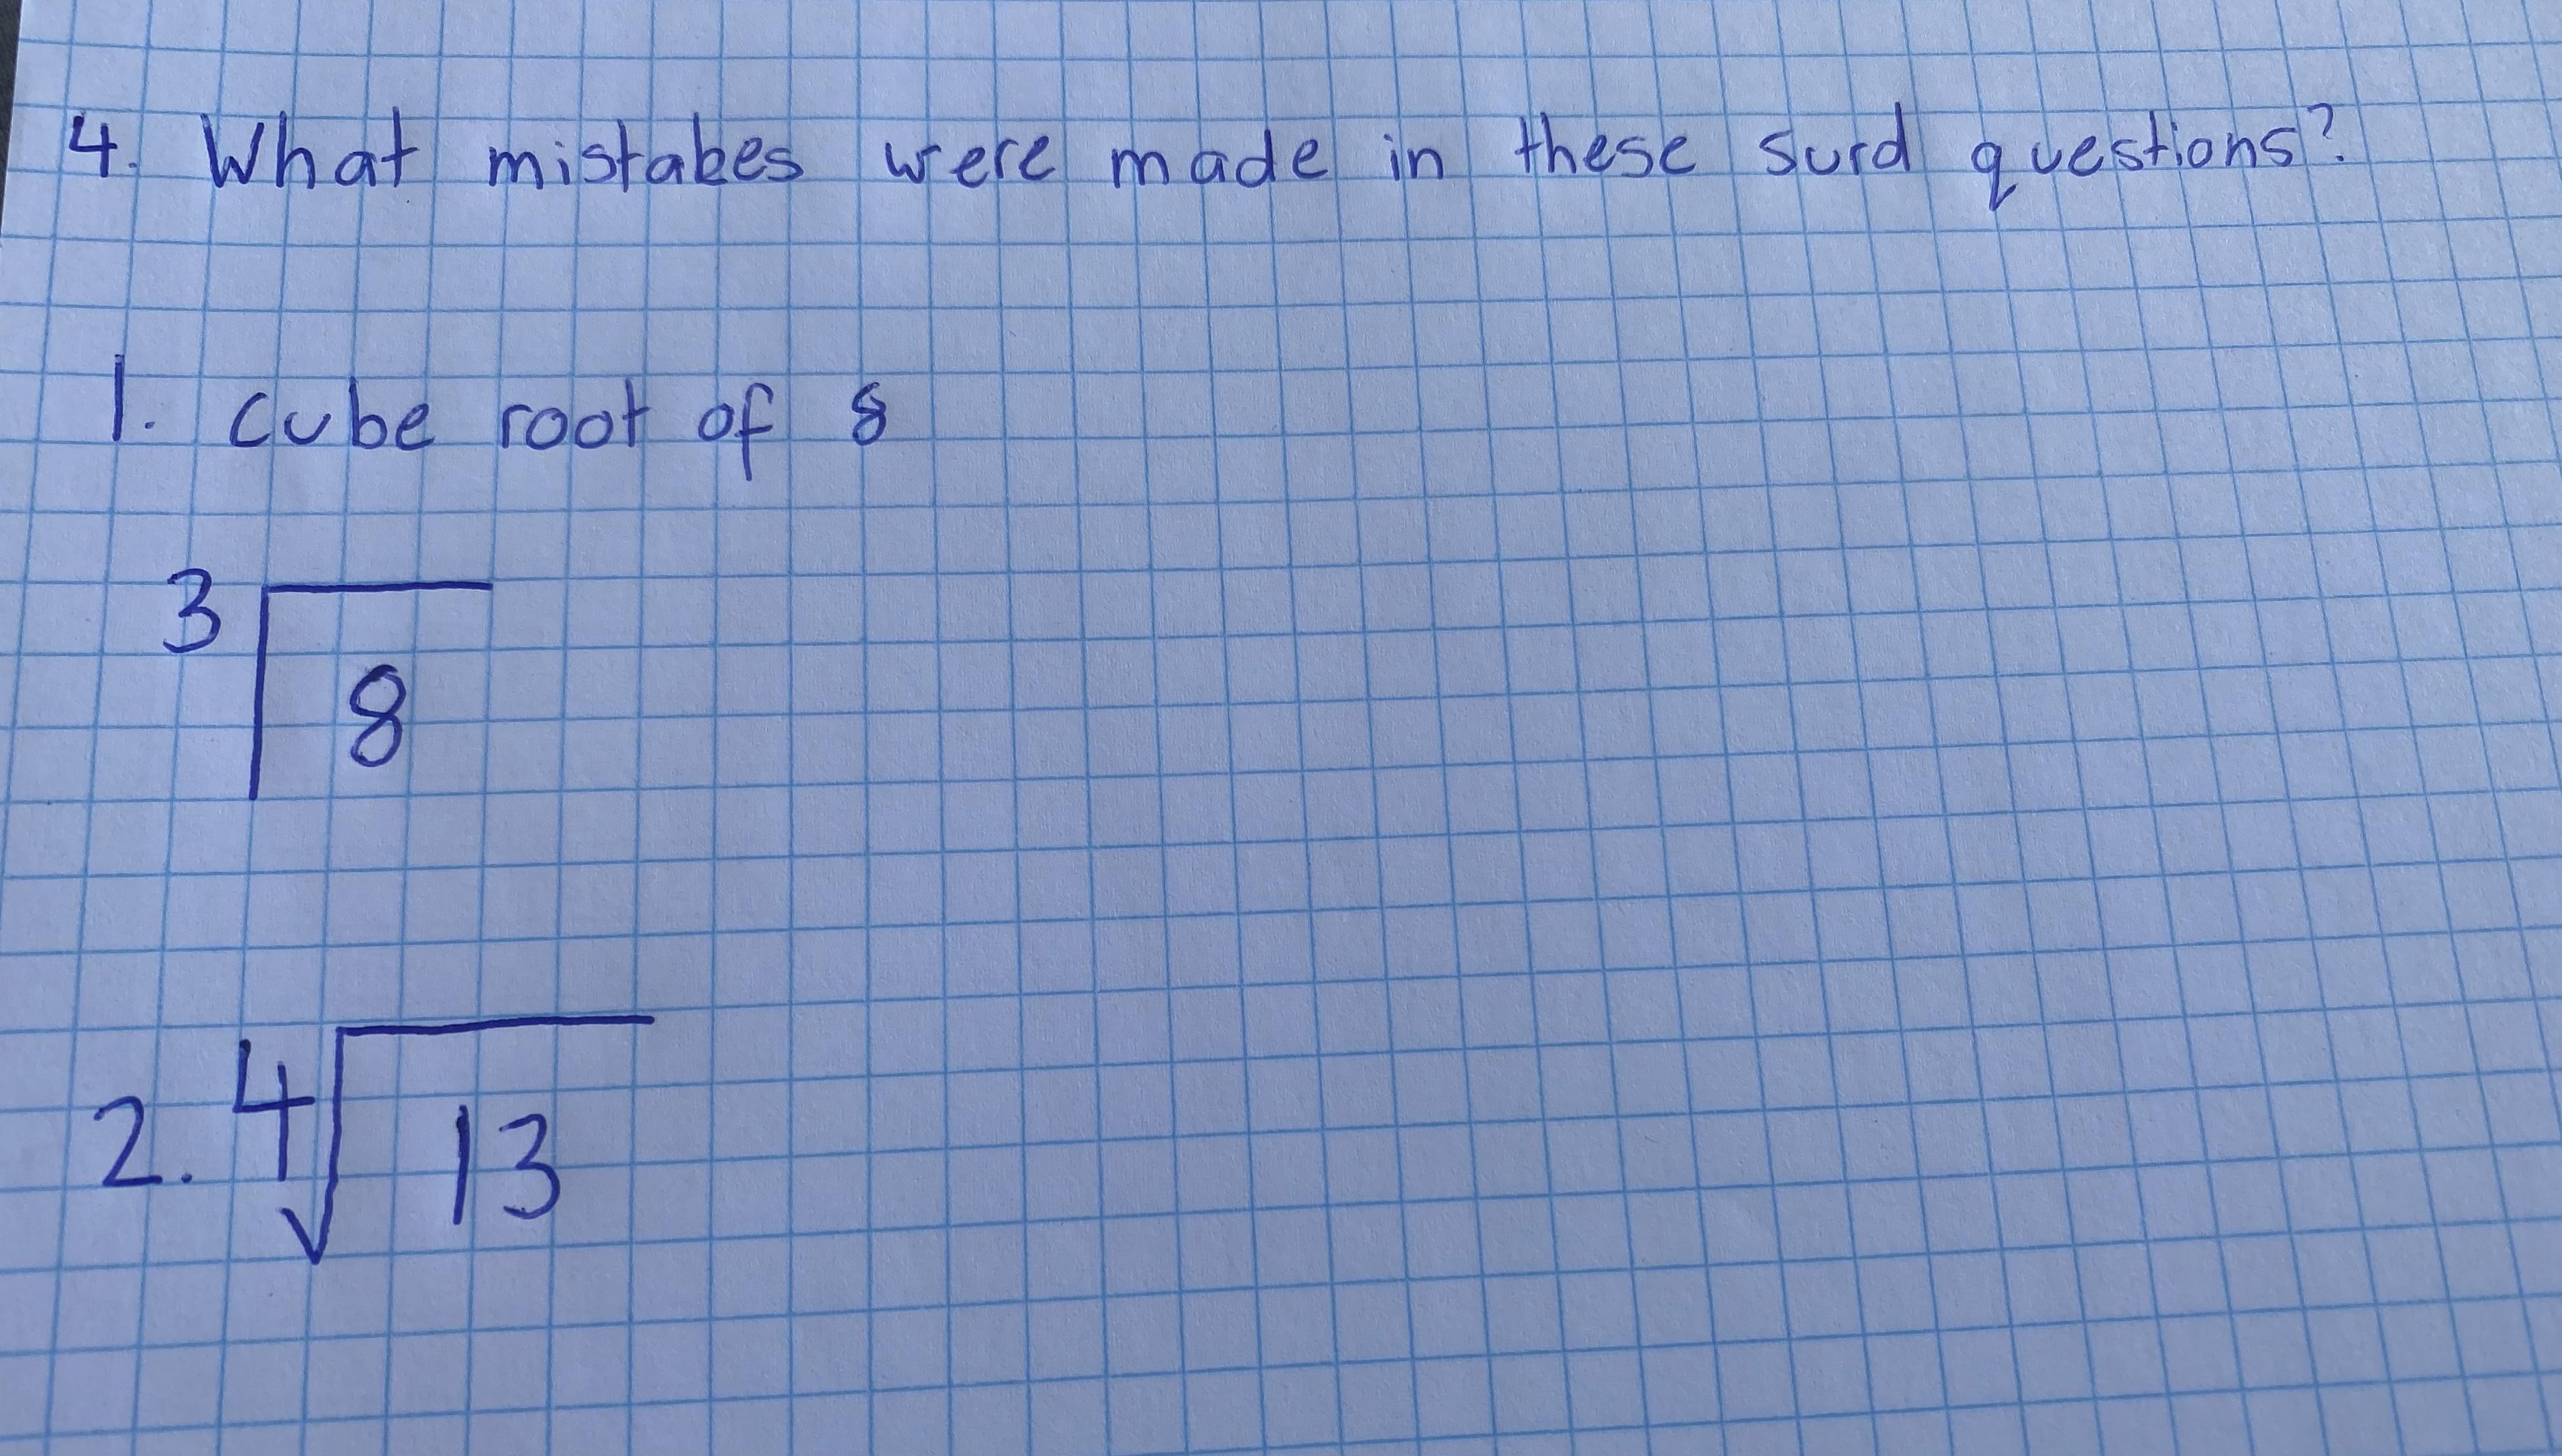 4. What mistakes were made in these surd questions?
1. cube root of 8
3 8
2. 4√13